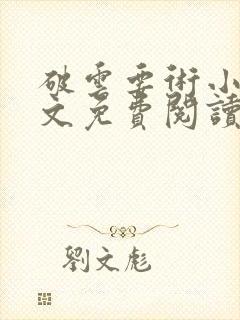 破雲要術小
文免費閱讀
劉文彪